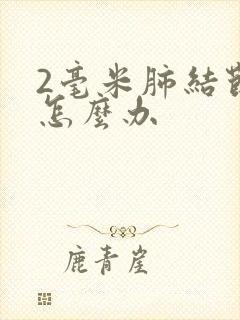 2毫米肺結節
怎麼办
鹿青崖